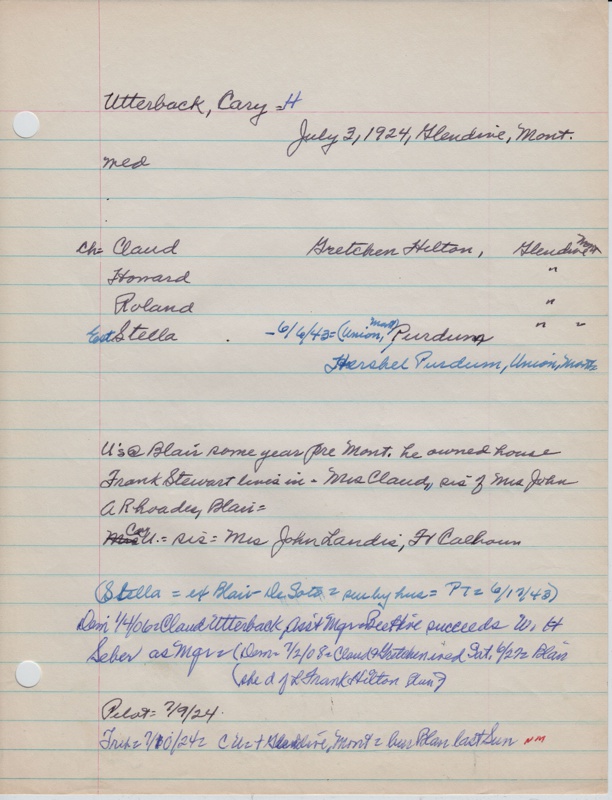 Utterback, Cary = H
July 3, 1924, Glendive, Mont.
med
ch= Claud Gretchen Hilton, Glendive Mont
Howard "
Roland "
Est Stella - 6/6/43 = (Union, Mont) Purdum " "
Hershel Purdum, Union, Mont =
U's @ Blair some year pre Mont. he owned house
Frank Stewart lives in - Mrs Claud, sis of Mrs John
A Rhoades, Blair =
Mrs Cary U. = sis = Mrs John Landis, Ft Calhoun
(Stella = ex Blair - De Soto = sur by hus = PT = 6/17/43)
Dem 1/4/06 = Claud Utterback, Asst Mgr Beehive succeeds W. H
Seber as Mgr = (Dem = 7/2/08 = Claud & Gretchen Sat. 6/27 = Blair
(she d of L Frank Hilton)
Pilot = 7/9/24.
Trib = 7/10/24 = C U = + Glendive, Mont = bur Blair last Sun NM